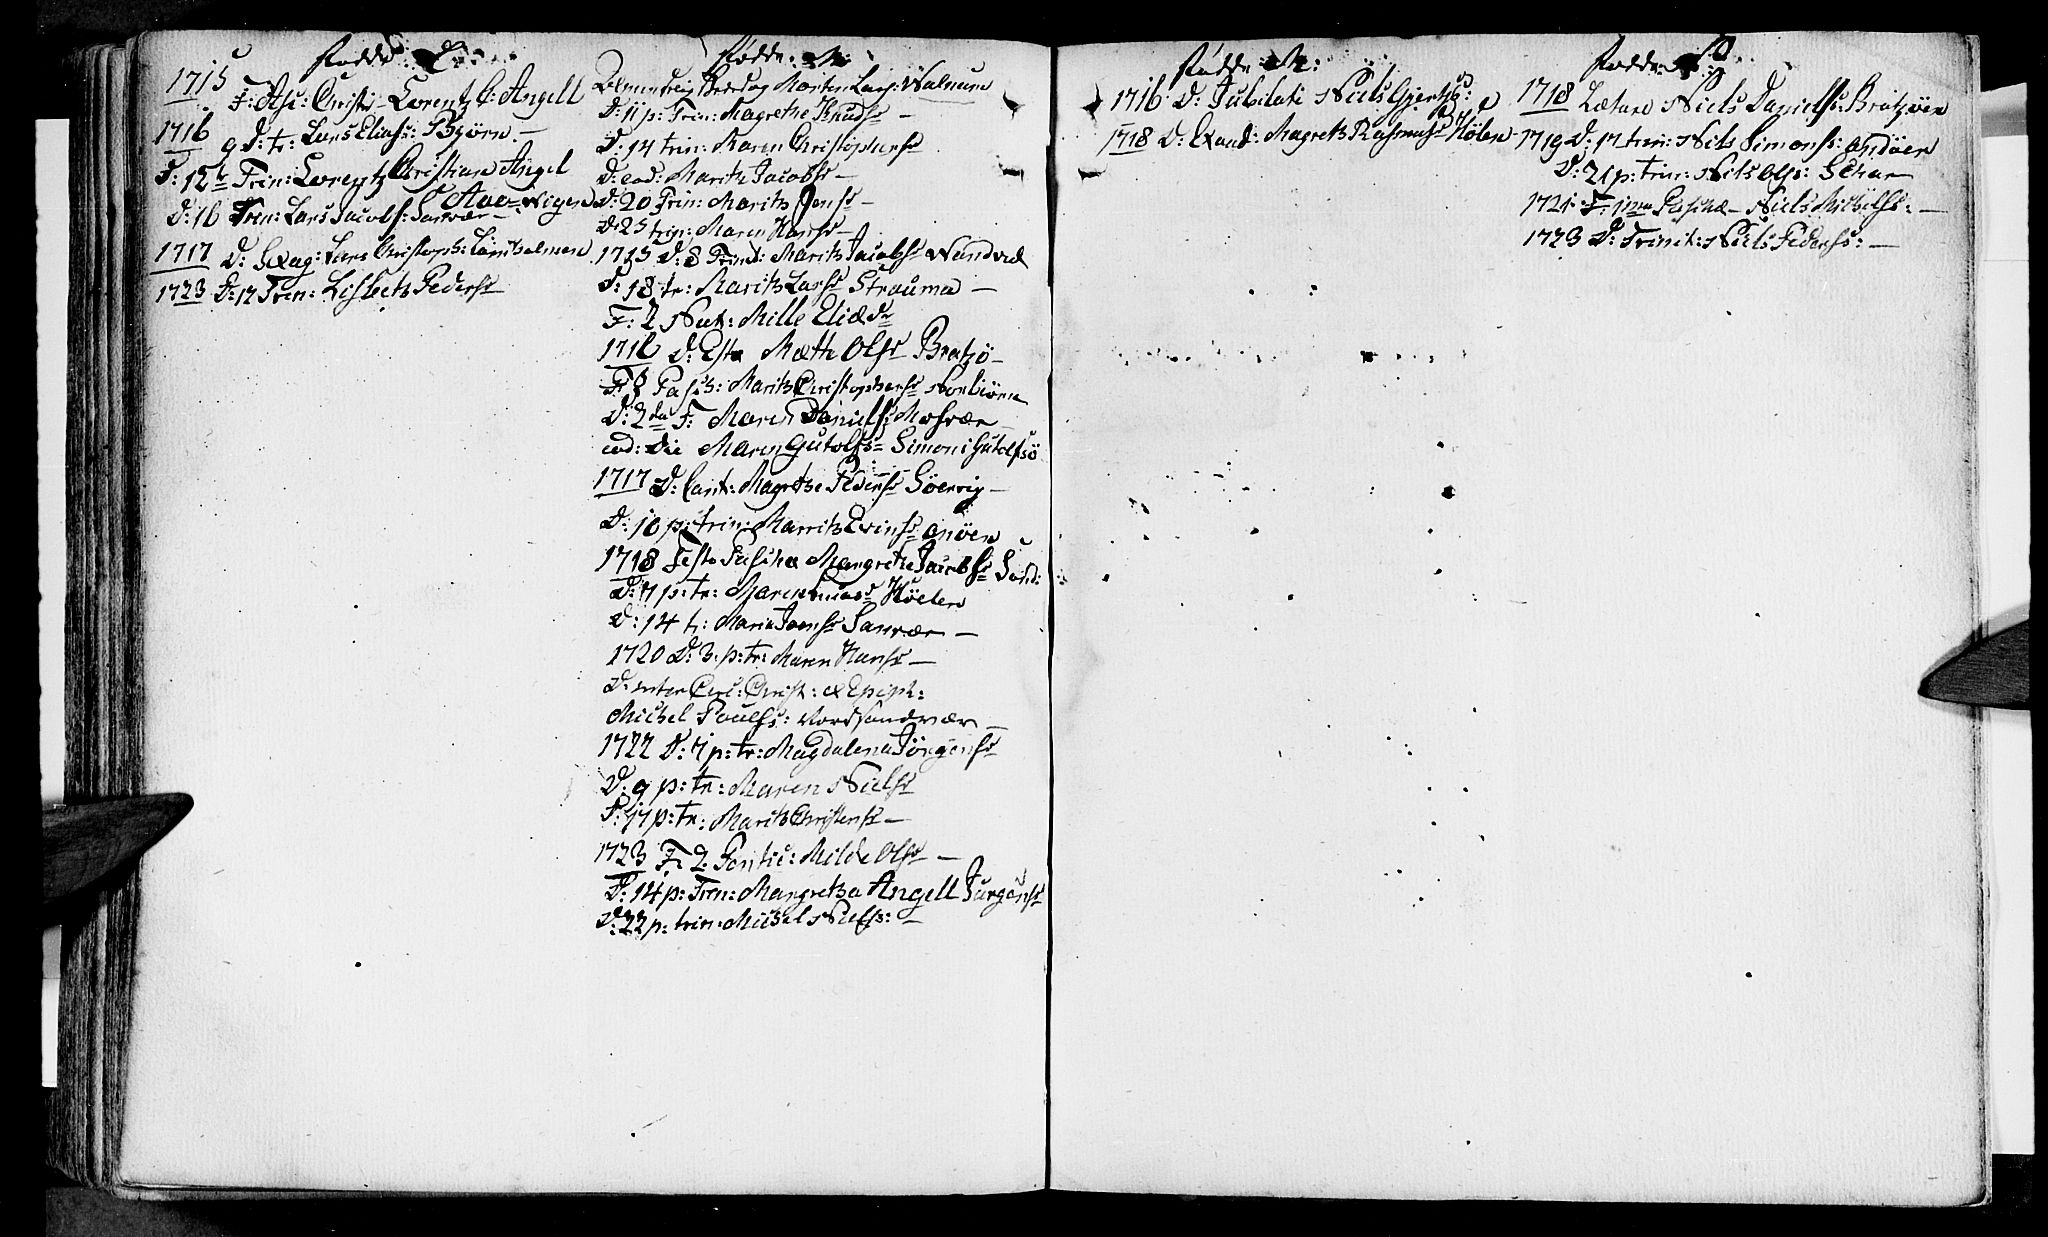 Fødde: L:
1715
F: Asc: Christi Lorentz C: Angell
1716
9 D: tr: Lars Eliaſs: Bjørn —
F: 12te Trin: Lorentz Christian Angel
D: 16 Trin: Lars Jacobſ: Sanvær —
1717 D: Sexag: Lars Christoph:
1723 D: 17 Trin: Lisbeth Pederſd
Fødde: M:
Morten Larſ: Walnum
D: 11 p: Trin: Magrethe Knudſd —
D: 14 trin: Maren Christopherſd
D: eod: Marith Jacobſd —
D: 20 Trin: Marith Jonſd —
D: 25 trin: Maren Hanſd —
1715 D: 8 Trinit: Marith Jacobſd Wandved
D: 18 tr: Marith Larſd Strauma —
F: 2 Nat: Mille Eliæ Dr
1716 D: Esto Mætte Olſd Bratzö —
F: 3 Pasch: Marith Christopherſd
D: 2da F: Maren Danielſ: Mosvær —
eod: Die Maren Gutolfſd Simon: Gutolfsö
1717 D: Cant: Magrethe Pederſd Söervig —
D: 10 p: trin: Marrith Evinſd
1718 Festo Pascha Mangrethe Jacobſd Sand:
D: 7 p: tr: Maren Höelen
D: 14 tr: Maria Joenſd Sanvær —
1720 D: 3. p: tr: Maren Hanſd —
D: inter Circ: Christ: & Epiph:
Michel Poulſs: Nordsandvær —
1722 D: 7 p: tr: Magdalena Jörgenſd
D: 9 p: tr: Maren Nielſd
D: 17 p: tr: Marith Christenſd —
1723 F: 2. Pentec: Milde Olſd —
D: 14 p: Trin: Margretha Angell Jurgenſd
D: 22 p: trin: Michel Nielſs: —
Fødde N:
1716 D: Jubilate Niels Gjertzs:
1718 D: Exaud: Magreth Rasmusſd Hölen
Fødde: N:
1718 Lætare Niels Danielſs: Bratzöen
1719 D: 17 trin: Nils Simonſs: Andöen
D: 21 p: trin: Nils Olſs: Schar
1721 F: 1ma Paschæ Niels Michelſs: —
1723 D: Trinit: Niels Pederſs: —